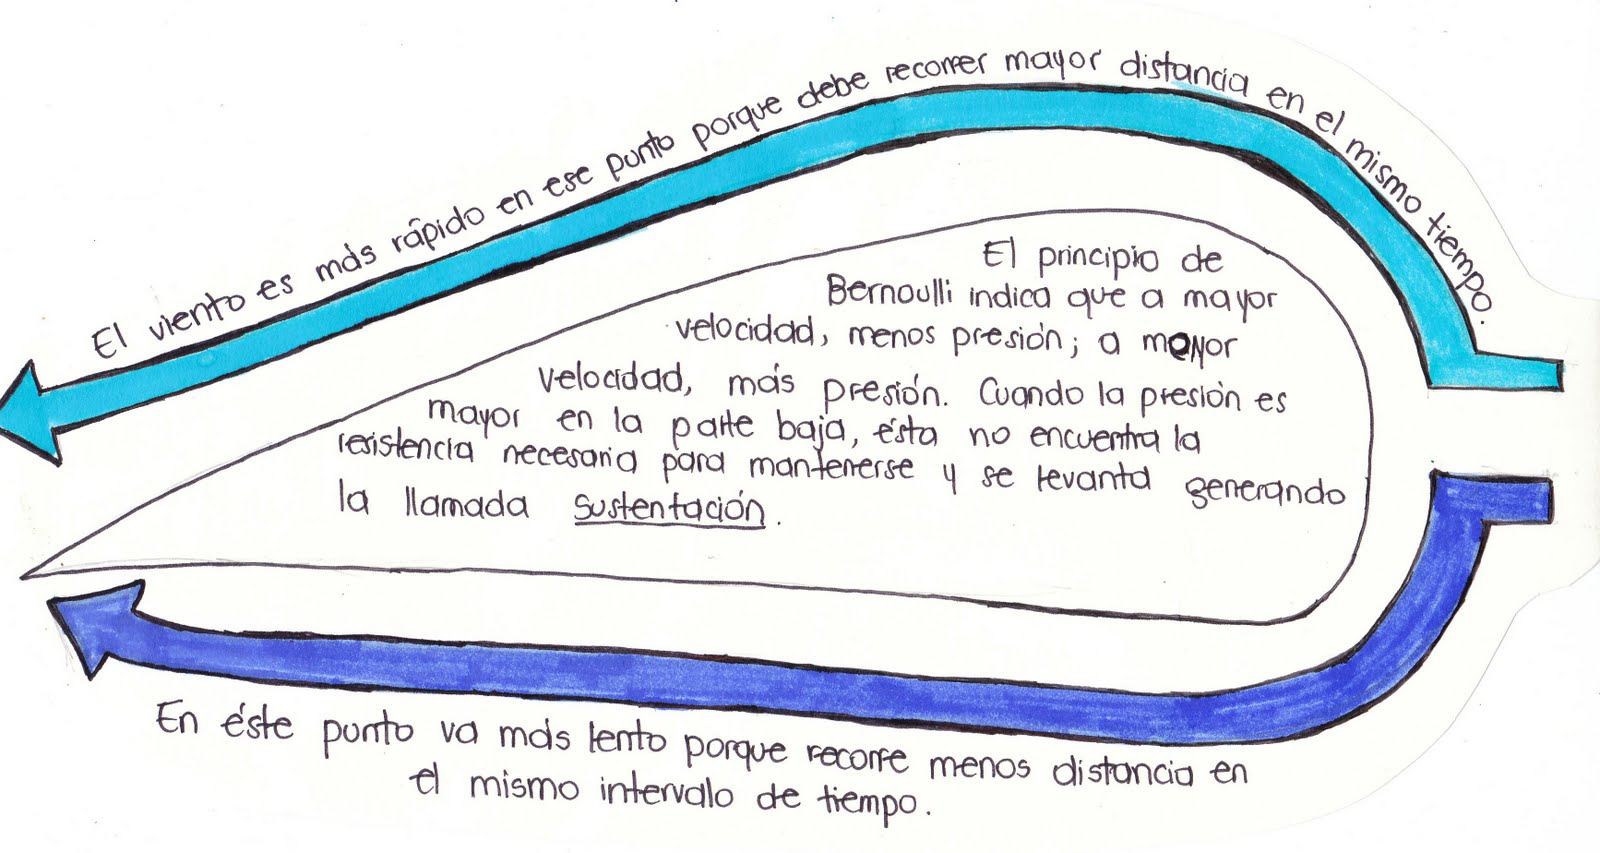 El viento es más rápido en ese punto porque debe recorrer mayor distancia en el mismo tiempo.
El principio de
Bernoulli indica que a mayor
velocidad, menos presión; a menor
velocidad, más presión. Cuando la presión es
mayor en la parte baja, ésta no encuentra la
resistencia necesaria para mantenerse y se levanta generando
la llamada sustentación.
En éste punto va más lento porque recorre menos distancia en
el mismo intervalo de tiempo.